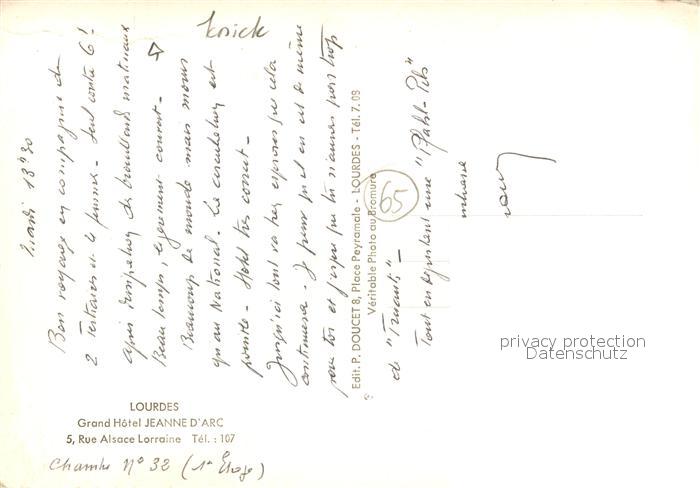 Mardi 18h30
Bon voyage en compagnie de
2 Tertiaires et le prime - Seul contre 6!
Après dissipation des brouillards matinaux
Beau temps, légèrement couvert -
Beaucoup de monde mais moins
qu'au National. La circulation est
Hôtel très correct -
Jusqu'ici tout va bien espérons que cela
continuera - Je pense qu'il en est de même
pour toi et j'espère que tu n'auras pas trop
de
Tout en
65
Edit. P. DOUCET 8, Place Peyramale - LOURDES - Tél. 7.08
Véritable Photo au Bromure
LOURDES
Grand Hôtel JEANNE D'ARC
5, Rue Alsace Lorraine Tél. : 107
Chambre N° 32 (1er Etage)
privacy protection
Datenschutz